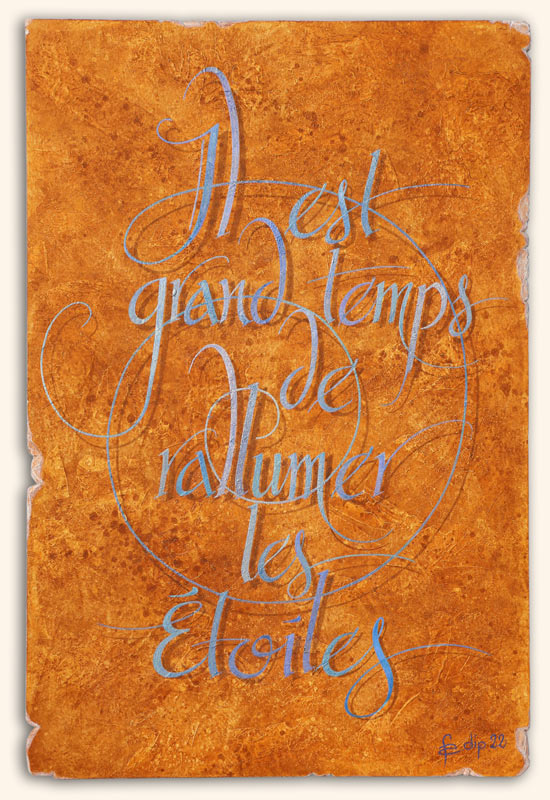 Il est
grand temps
de
rallumer
les
Étoiles